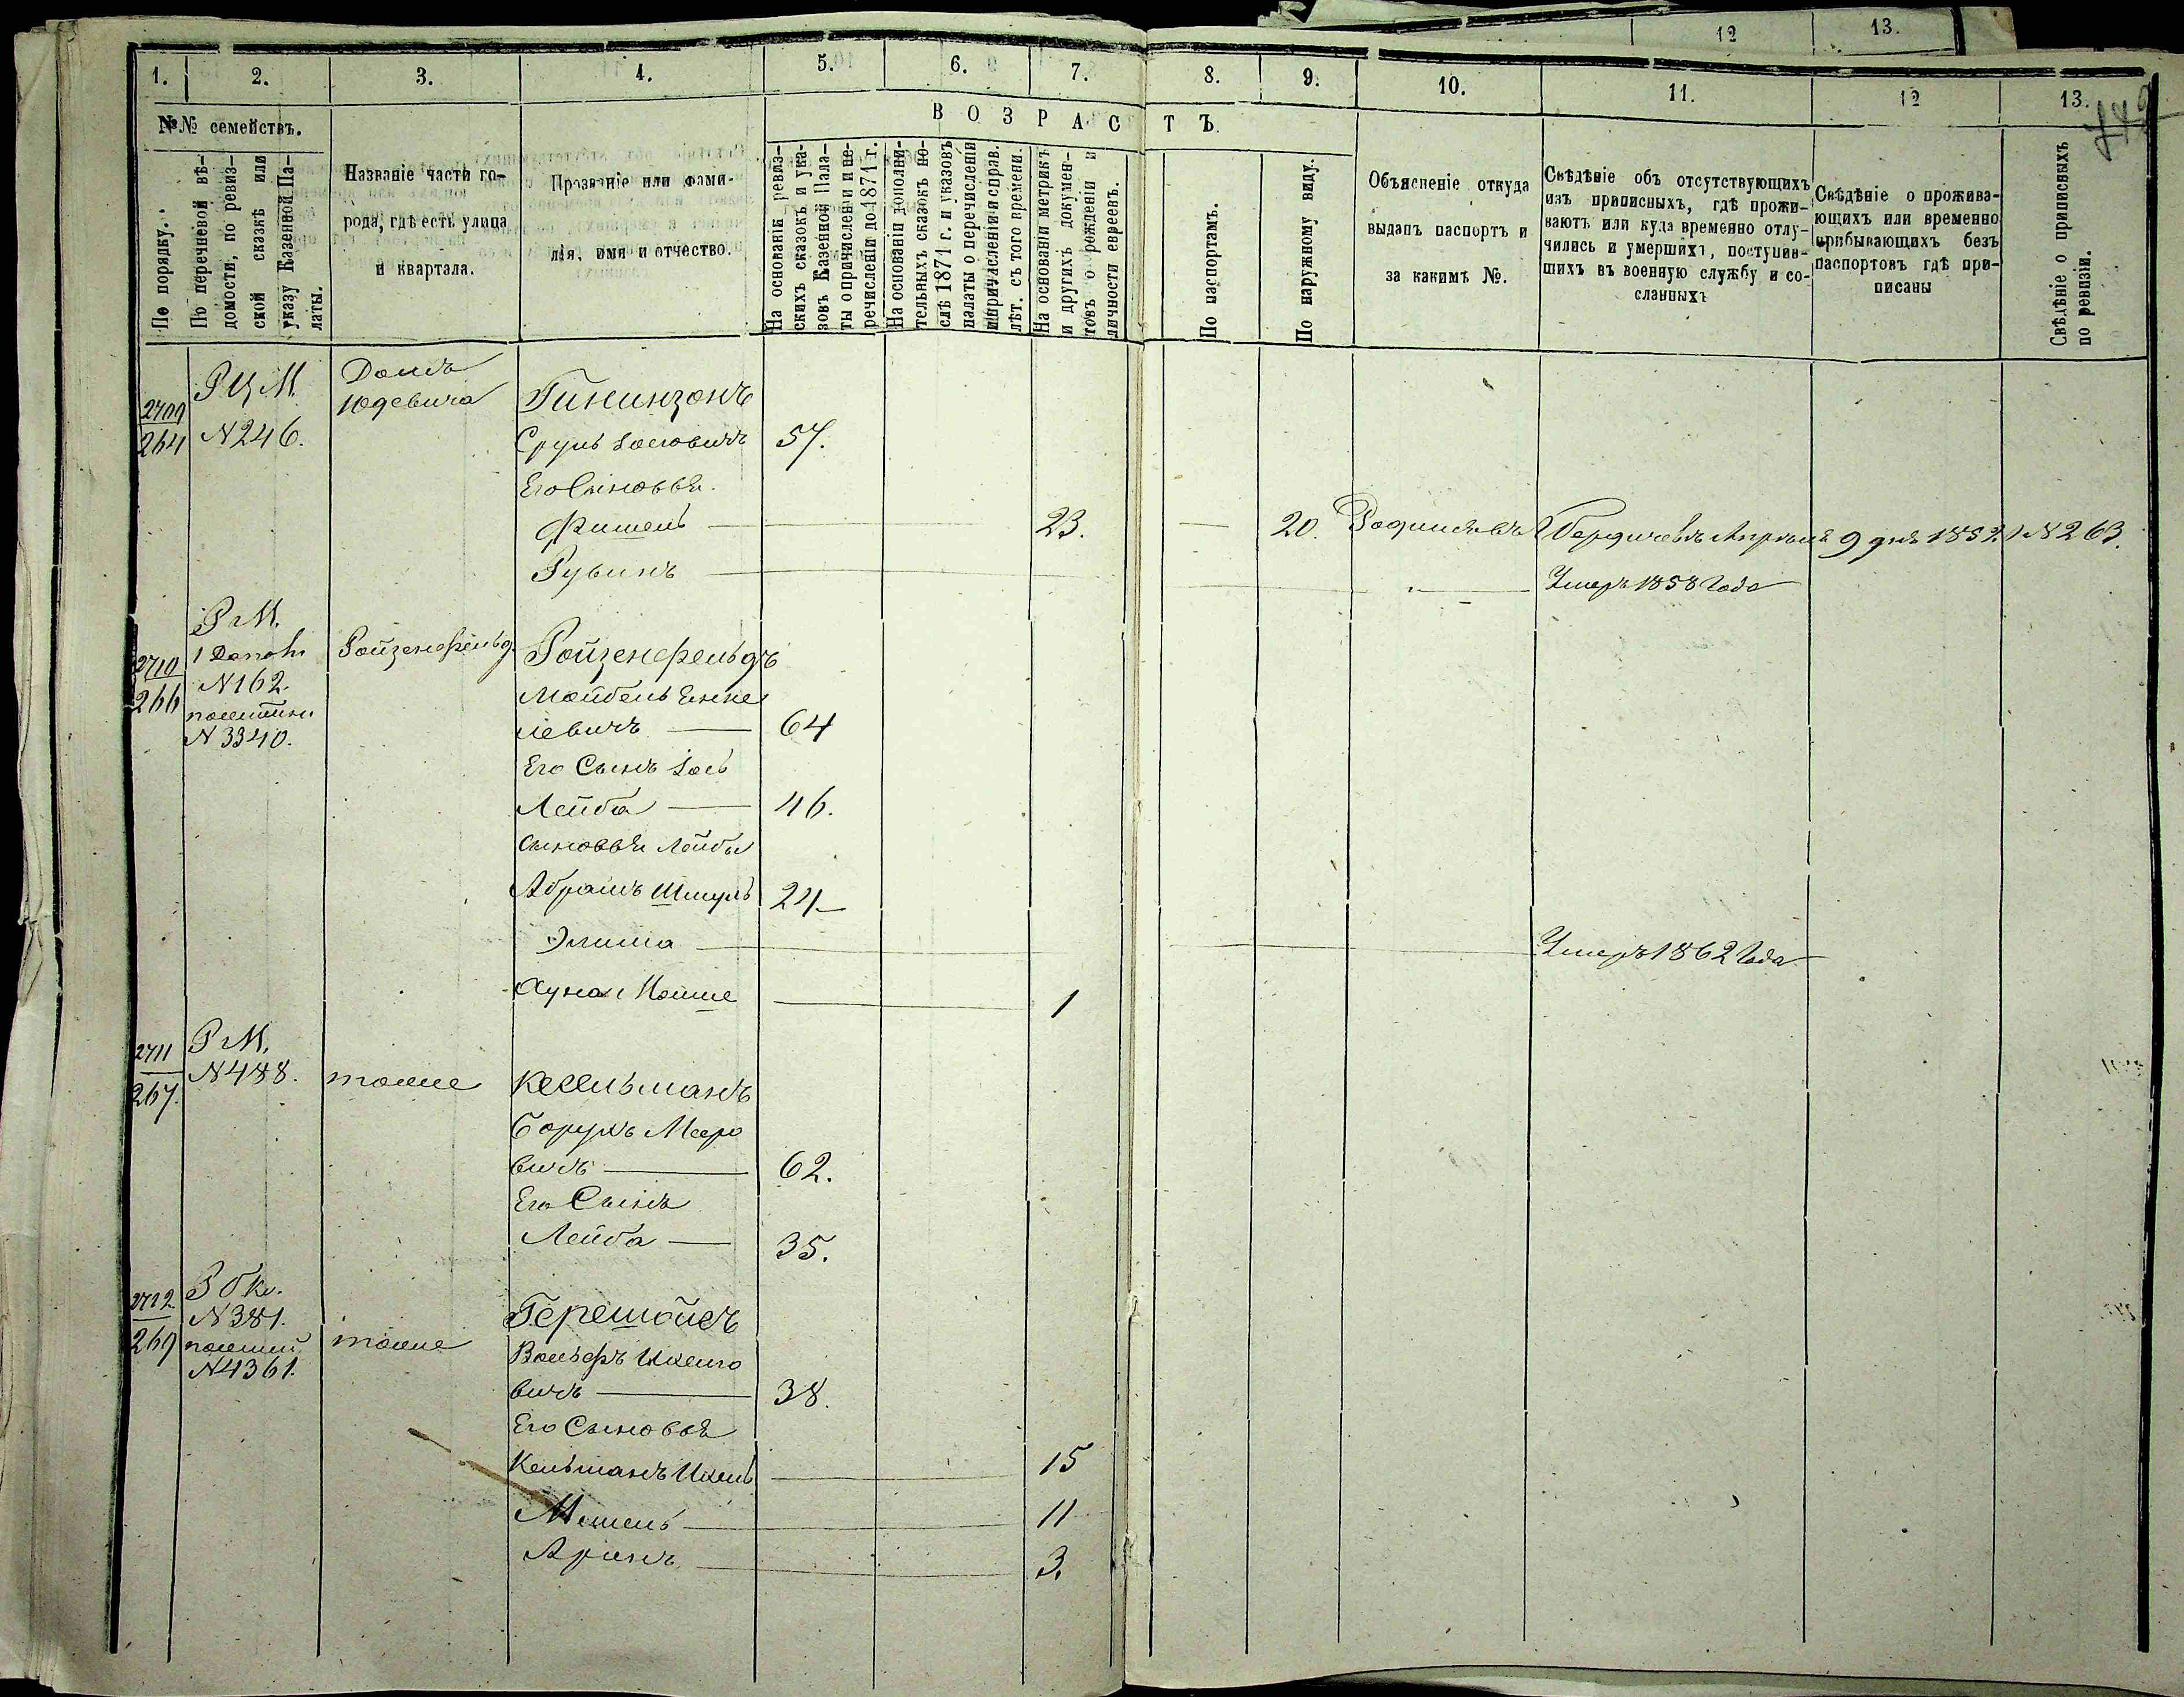 12 13.
1. 2. 3. 4. 5. 6. 7. 8. 9. 10. 11. 12 13.
№№ семействъ.
В О З Р А С Т Ъ
По порядку.
По перечневой вѣ-
домости, по ревиз-
ской сказкѣ или
указу Казенной Па-
латы.
Названіе части го-
рода, гдѣ есть улица
и квартала.
Прозваніе или фами-
лія, имя и отчество.
На основаніи ревиз-
скихъ сказокъ и ука-
зовъ Казенной Пала-
ты о причисленіи и пе-
речисленіи до 1871 г.
На основаніи дополни-
тельныхъ сказокъ по-
слѣ 1871 г. и указовъ
палаты о перечисленіи
и причисленіи и справ.
лѣт. съ того времени.
На основаніи метрикъ
и другихъ докумен-
товъ о рожденіи и
личности евреевъ.
По паспортамъ.
По наружному виду.
Объясненіе откуда
выданъ паспортъ и
за какимъ №.
Свѣдѣніе объ отсутствующихъ
изъ приписныхъ, гдѣ прожи-
ваютъ или куда временно отлу-
чились и умершихъ, поступив-
шихъ въ военную службу и со-
сланныхъ
Свѣдѣніе о прожива-
ющихъ или временно
прибывающихъ безъ
паспортовъ гдѣ при-
писаны
Свѣдѣніе о приписныхъ
по ревизіи.
2709
264
Р Ц М.
N 246.
Домъ
Юдевича
Гининзонъ
Сруль Іосіовичъ 57.
Его Сыновья.
Фишель 23. 20. Бердичевъ Апрѣля 9 дня N 263.
Рувинъ Умеръ 1858 Года
2710
266
Р М.
N 162.
N 3340.
Ройзенфельд. Ройзенфельдъ
левичъ 64
Его Сынъ Іось
Лейба 46.
Сыновья Лейбы
Абрамъ Шмуль 24
Элиша Умеръ 1862 Года
Хуна Мойше 1
2711
267.
Р М.
N 488.
тоже Кесельманъ
Борухъ Меро
вичъ 62.
Его Сынъ
Лейба 35.
2712
269
N 381.
N 4361.
тоже
Вольфъ Ицко
вичъ 38.
Его Сыновья
Кельманъ Ицель 15
11
3.